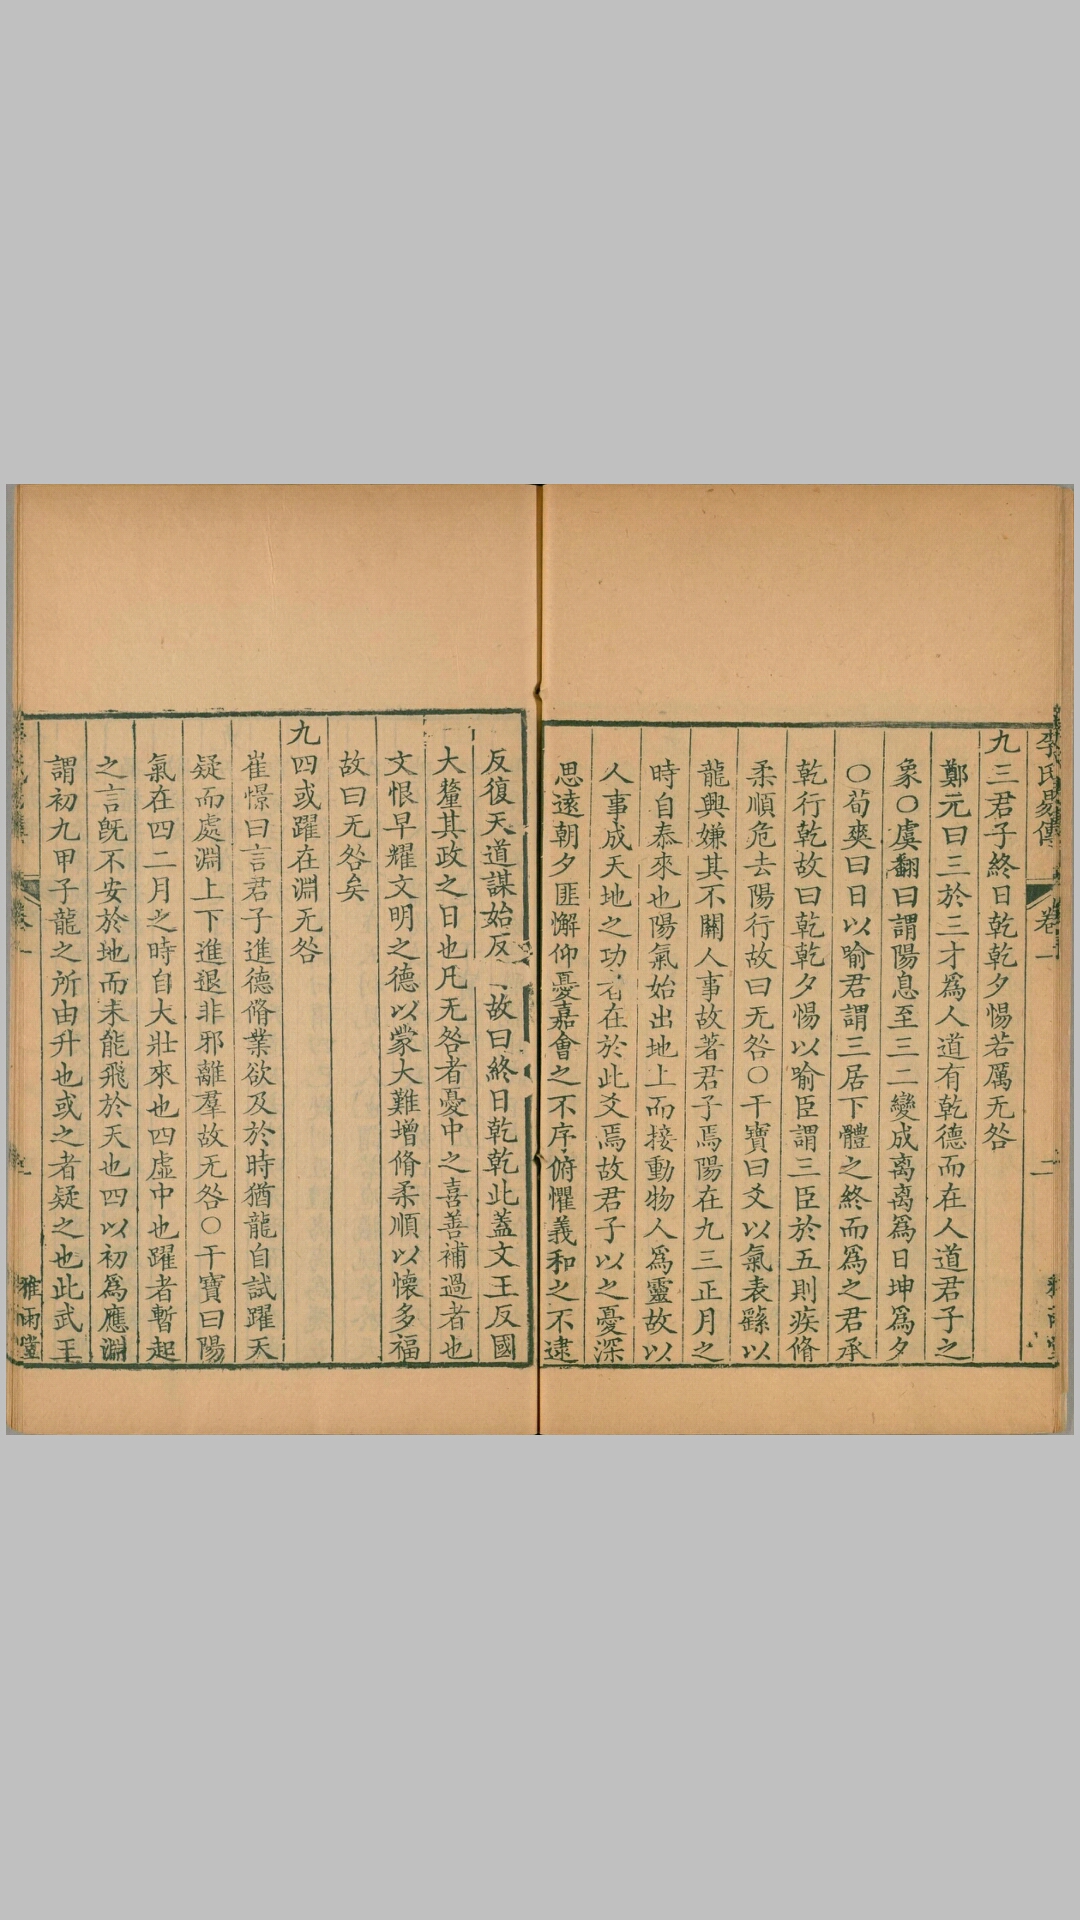 李氏易傳
卷一
二
九三君子終日乾乾夕惕若厲无咎
鄭元曰三於三才爲人道有乾德而在人道君子之
象○虞翻曰謂陽息至三二變成离离爲日坤爲夕
○荀爽曰日以喻君謂三居下體之終而爲之君承
乾行乾故曰乾乾夕惕以喻臣謂三臣於五則疾脩
柔順危去陽行故曰无咎○干寶曰爻以氣表繇以
龍興嫌其不關人事故著君子焉陽在九三正月之
時自泰來也陽氣始出地上而接動物人爲靈故以
人事成天地之功者在於此爻焉故君子以之憂深
思遠朝夕匪懈仰憂嘉會之不序俯懼義和之不逮
反復天道謀始反 故曰終日乾乾此蓋文王反國
大釐其政之日也凡无咎者憂中之喜善補過者也
文恨早耀文明之德以蒙大難增脩柔順以懷多福
故曰无咎矣
九四或躍在淵无咎
崔憬曰言君子進德脩業欲及於時猶龍自試躍天
疑而處淵上下進退非邪離羣故无咎○干寶曰陽
氣在四二月之時自大壯來也四虛中也躍者暫起
之言旣不安於地而未能飛於天也四以初爲應淵
謂初九甲子龍之所由升也或之者疑之也此武王
雅雨堂